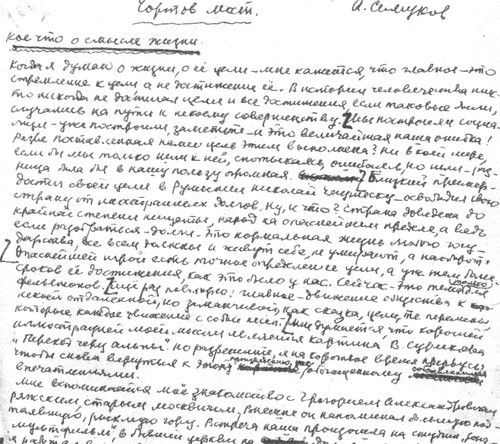 Чортов мост. А. Селуков
Кое что о смысле жизни.
Когда я думаю о жизни, о её цели – мне кажется, что главное – это
стремление к цели а не достижение её. В истории человечества ник-
то никогда не достигал цели и все достижения если таковые были,
случались на пути к некоему совершенству. Мы построили социа-
лизм – уже построили, заметьте – и это величайшая наша ошибка!
Разве поставленная цель этим выполнена? Ни в коей мере,
если бы мы только шли к ней, спотыкаясь, ошибаясь, но шли – раз-
ница была бы в нашу пользу огромная. Близкий пример –
достиг своей цели в Румынии Николай Чаушеску – освободил свою
страну от иностранных долгов. Ну, и что? Страна доведена до
крайней степени нищеты, народ на опасней чем прежде, а ведь
если разобраться – долги – это нормальная жизнь любого госу-
дарства, все всем должны и живут себе, не умирают, а наоборот!
Опаснейшей игрой есть точное определение цели, а уж тем более
сроков её достижения, как это было у нас. Сейчас – это только тема для
фельетонов. Ещё раз повторю: главное – движение общества к
некой отдаленной, но заманчивой, как сказка, цели, те перемены
которые, каждое движение с собой несет. Мне думается что хорошей
иллюстрацией моей мысли является картина В. Сурикова
"Переход через Альпы" но разрешите, я на короткое время прервусь,
чтобы снова вернуться к этому
впечатлениями.
Мне вспоминается моё знакомство с Григорием Александровичем
ряжским, старым москвичом, внешне он напоминал большую под-
таявшую, рыхлую гору. Встреча наша произошла на студии "Союз-
мультфильм", в бывшей церкви на